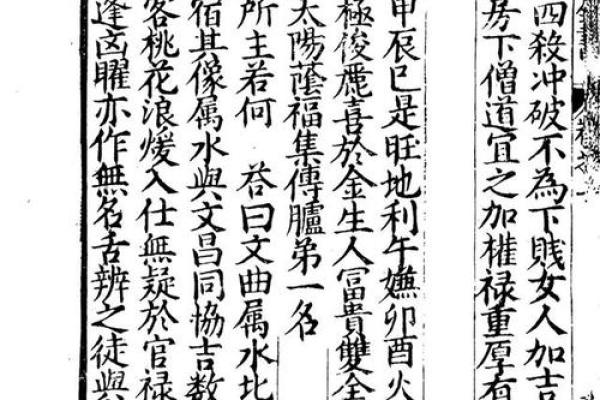 四殺冲破不為下賎女人加吉
房下僧道宜之加權禄重厚有
辰巳是旺地利午嫌卯酉火
極俊麗喜於金生人冨貴雙全
太陽蔭福集傳臚弟一名
所主若何 荅曰文曲属水北
宿其像属水與文昌同協吉数
客桃花浪煖入仕無疑於官禄
逢凶曜亦作無名舌辨之徒與